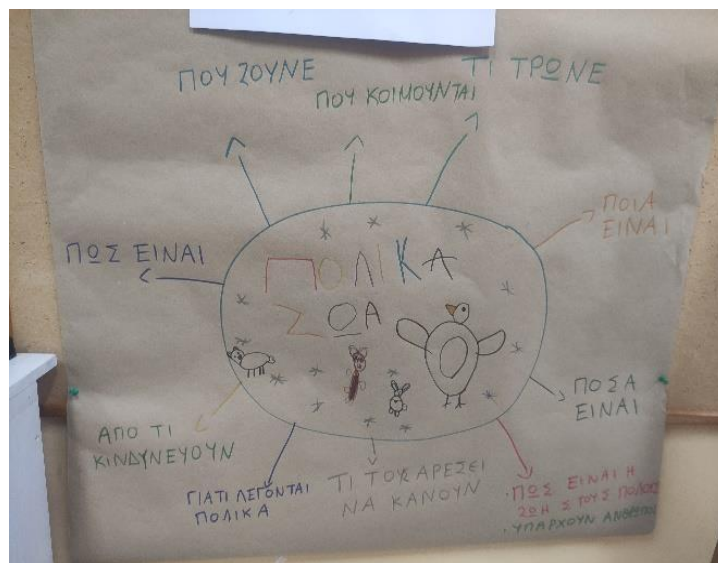 ΠΟΥ ΖΟΥΝΕ
ΠΟΥ ΚΟΙΜΟΥΝΤΑΙ
ΤΙ ΤΡΩΝΕ
ΠΩΣ ΕΙΝΑΙ
ΠΟΛΙΚΑ
ΣΩΑ
ΠΟΙΑ
ΕΙΝΑΙ
ΠΟΣΑ
ΕΙΝΑΙ
ΑΠΟ ΤΙ
ΚΙΝΔΥΝΕΥΟΥΝ
ΓΙΑΤΙ ΛΕΓΟΝΤΑΙ
ΠΟΛΙΚΑ
ΤΙ ΤΟΥΣ ΑΡΕΣΕΙ
ΝΑ ΚΑΝΟΥΝ
·ΠΩΣ ΕΙΝΑΙ Η
ΖΩΗ ΣΤΟΥΣ ΠΟΛΟΥΣ
·ΥΠΑΡΧΟΥΝ